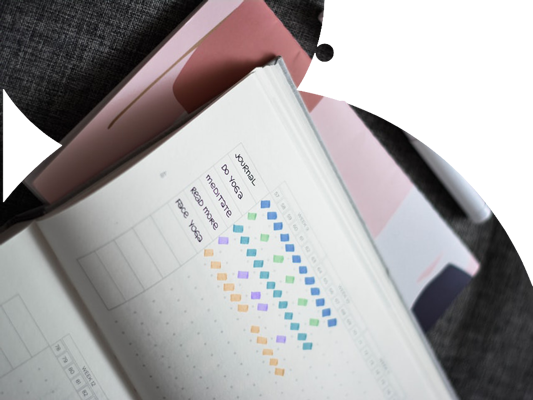 JOURNAL
DO YOGA
MEDITATE
READ MORE
FACE YOGA
WEEK 12